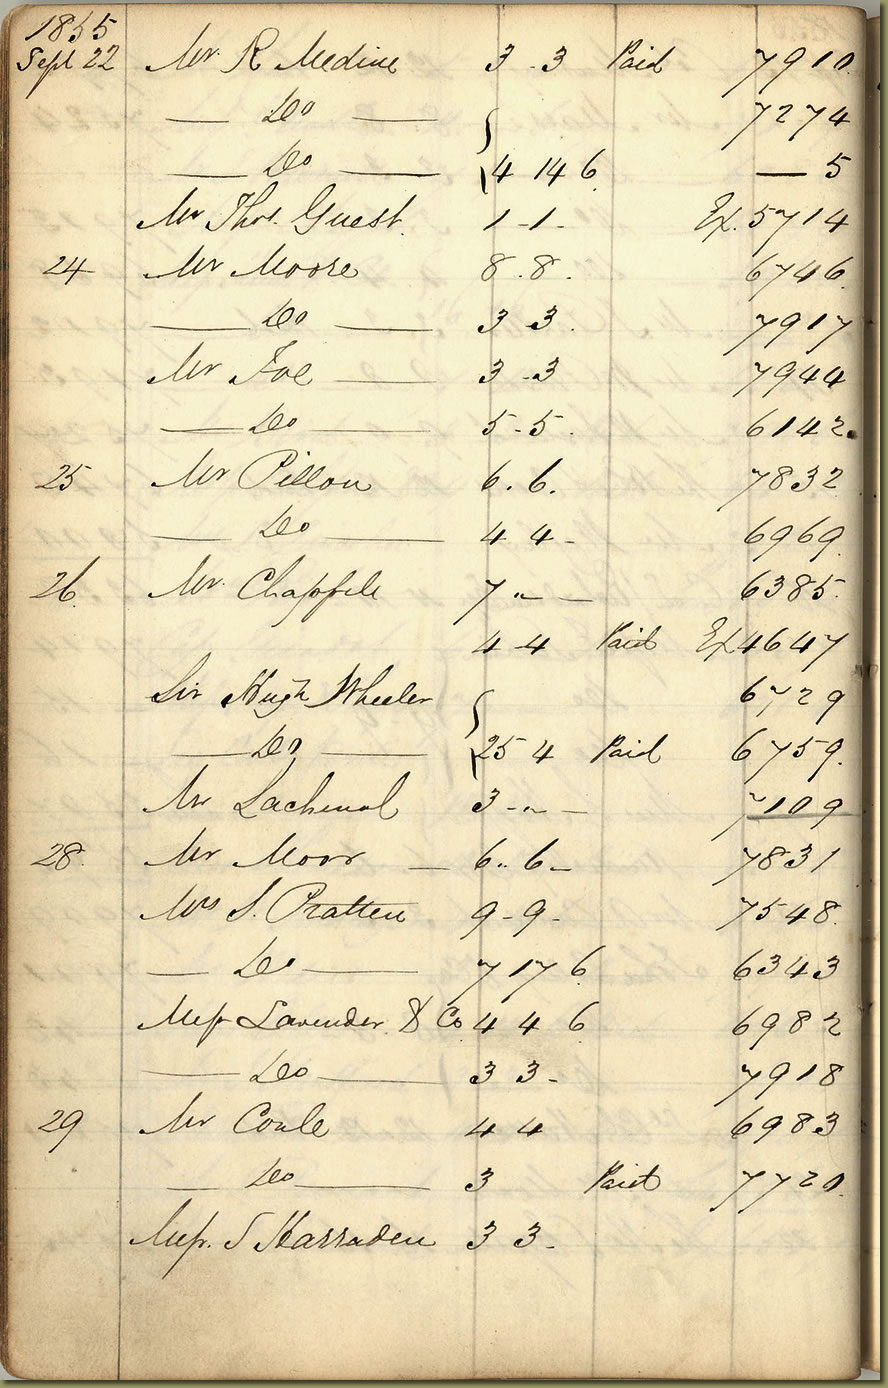 1855
Sept 22 Mr R Medine 3 - 3 Paid 7910
— Do — 7274
— Do — 4 14 6 — 5
Mr Thos. Guest. 1 - 1 - Ex. 5714
24 Mr Moore 8 . 8 . 6746
— Do — 3 3 . 7917
Mr Foe — 3 - 3 7944
— Do — 5 - 5 . 6142
25 Mr Pillou 6 . 6 . 7832
— Do — 4 4 - 6969
26 Mr Chappell 7 " — 6385
4 - 4 Paid Ex 4647
Sir Hugh Wheeler 6729
— Do — 25 4 Paid 6759
Mr Lachenal 3 - " — 7109
28 Mr Moor — 6 . 6 - 7831
Mrs S. Pratten 9 - 9 - 7548
— Do — 7 17 6 6343
Mess Lavender & Co 4 4 6 6982
— Do — 3 3 - 7918
29 Mr Coule 4 4 6983
— Do — 3 Paid 7720
Mess. S Kassaden 3 3 -